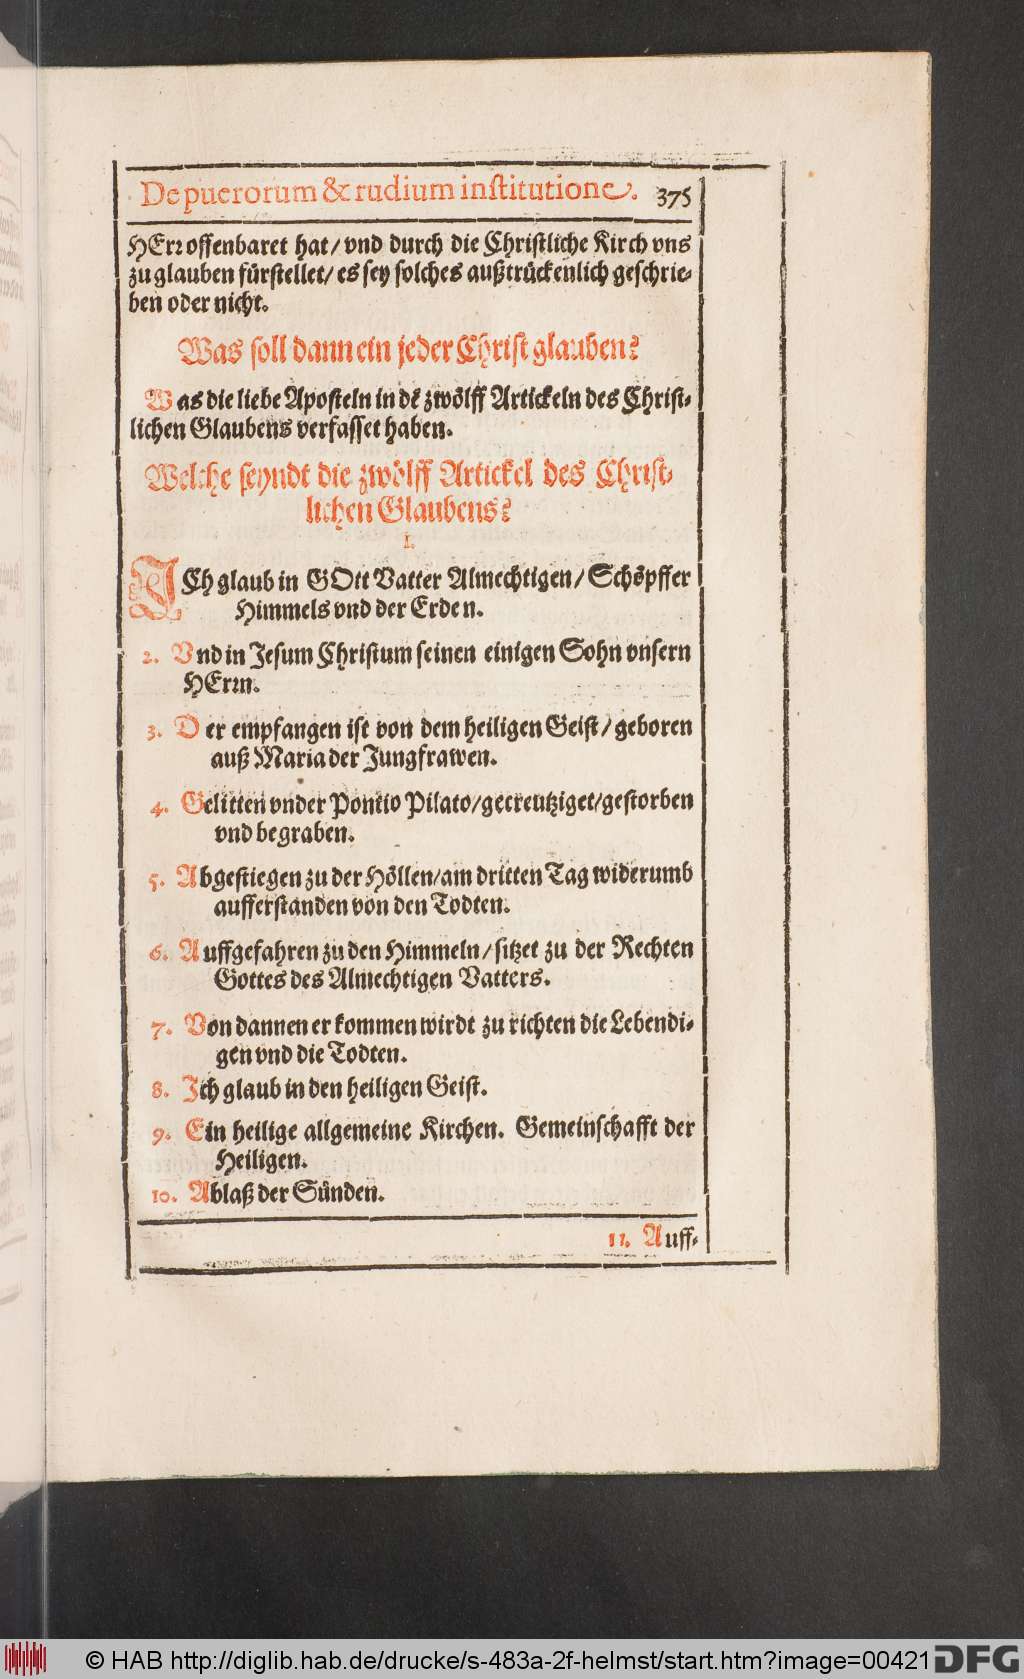 De puerorum & rudium institutione. 375
HErr offenbaret hat/ vnd durch die Christliche Kirch vns
zu glauben fürstellet/ es sey solches außtrückenlich geschrie-
ben oder nicht.
Was soll dann ein jeder Christ glauben?
Was die liebe Aposteln in dẽ zwölff Artickeln des Christ-
lichen Glaubens verfasset haben.
Welche seyndt die zwölff Artickel des Christ-
lichen Glaubens?
I.
ICh glaub in GOtt Vatter Almechtigen/ Schöpffer
Himmels vnd der Erden.
2. Vnd in Jesum Christum seinen einigen Sohn vnsern
HErrn.
3. Der empfangen ist von dem heiligen Geist/ geboren
auß Maria der Jungfrawen.
4. Gelitten vnder Pontio Pilato/gecreutziget/gestorben
vnd begraben.
5. Abgestiegen zu der Höllen/am dritten Tag widerumb
aufferstanden von den Todten.
6. Auffgefahren zu den Himmeln/ sitzet zu der Rechten
Gottes des Almechtigen Vatters.
7. Von dannen er kommen wirdt zu richten die Lebendi-
gen vnd die Todten.
8. Ich glaub in den heiligen Geist.
9. Ein heilige allgemeine Kirchen. Gemeinschafft der
Heiligen.
10. Ablaß der Sünden.
11. Auff-
© HAB http://diglib.hab.de/drucke/s-483a-2f-helmst/start.htm?image=00421 DFG